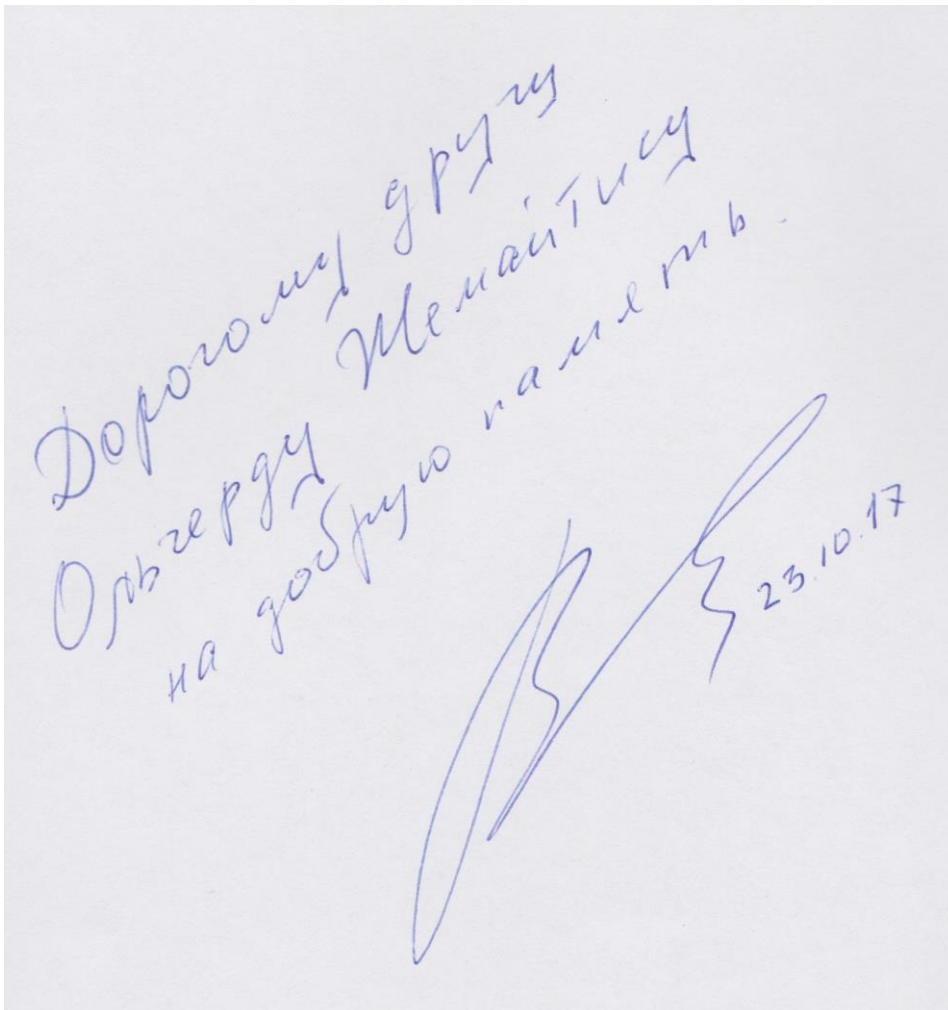 Дорогому другу
Ольгерду Жемайтису
на добрую память.
23.10.17